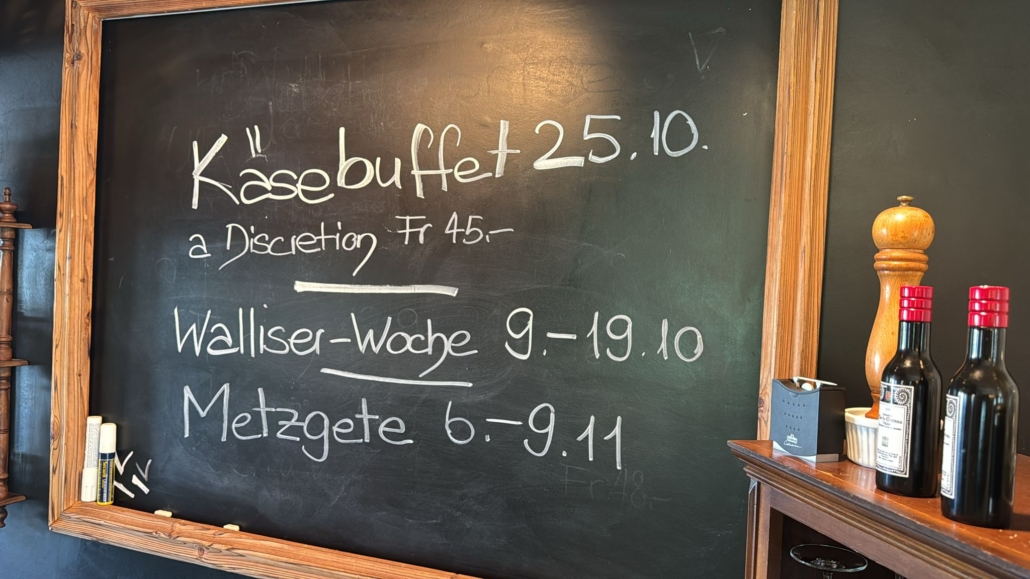 Käsebuffet 25.10.
a Discretion Fr 45.–
Walliser-Woche 9.–19.10
Metzgete 6.–9.11
Fr 48.–